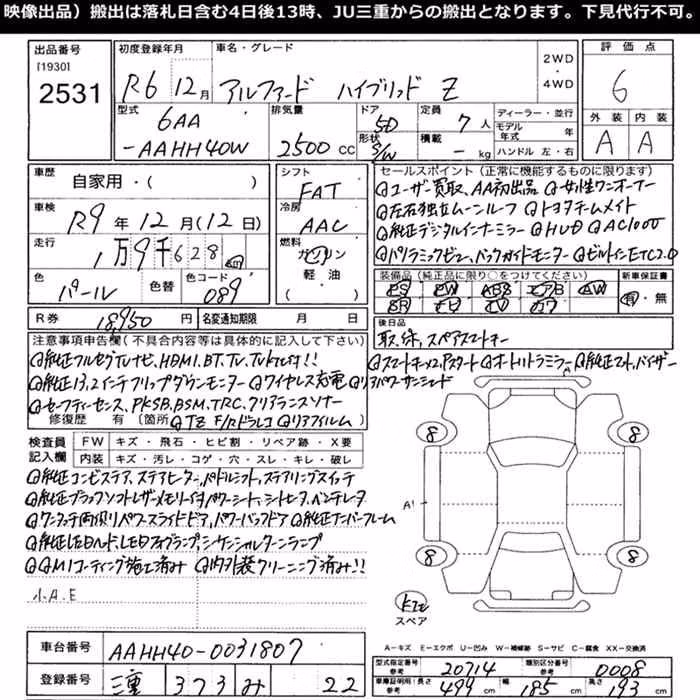 映像出品）搬出は落札日含む4日後13時、JU三重からの搬出となります。下見代行不可。
出品番号 初度登録年月 車名・グレード 2WD・4WD 評価点
[1930] 2531 R6 12月 アルファード ハイブリッド Z 6
型式 排気量 ドア形状 定員 積載 ディーラー・並行 モデル年式 年 ハンドル 左・右 外装 内装
6AA-AAHH40W 2500cc 5D S/W 7人 -kg A A
車歴 自家用・( ) シフト FAT
車検 R9年12月(12日) 冷房 AAC
走行 1万9千628km 燃料 ガソリン 軽油 ( )
色 パール 色替 色コード 089
R券 18,950円 名変通知期限 月 日
セールスポイント（正常に機能するものに限ります）
◎ユーザー買取、AA初出品 ◎女性ワンオーナー
◎左右独立ムーンルーフ ◎トヨタチームメイト
◎純正デジタルインナーミラー ◎HUD ◎AC100V
◎パノラミックビュー、バックガイドモニター ◎ビルトインETC2.0
装備品（純正品に限り○をつけてください） 新車保証書
PS PW ABS エアB AW 有・無
SR ナビ TV カワ
後日品
取、保、スペアスマートキー
注意事項申告欄（不具合内容等は具体的に記入して下さい）
◎純正フルセグTVナビ、HDMI、BT、TV、TVKTC付!!
◎スマートキーx2、Pスタート ◎オートリトラミラー ◎純正マット、バイザー
◎純正13.2インチフリップダウンモニター ◎ワイヤレス充電 ◎リヤパワーサンシェード
◎セーフティーセンス、PKSB、BSM、TRC、クリアランスソナー
修復歴 有（箇所 ◎TZ F/Rドラレコ ◎リアフィルム）
検査員記入欄 FW キズ・飛石・ヒビ割・リペア跡・X要
内装 キズ・汚レ・コゲ・穴・スレ・キレ・破レ
◎純正コンビステア、ステアヒーター、パドルシフト、ステアリングスイッチ
◎純正ブラックソフトレザーメモリー付パワーシート、シートヒータ、ベンチレータ
◎ワンタッチ両側パワースライドドア、パワーバックドア ◎純正ナンバーフレーム
◎純正LEDヘッド、LEDフォグランプ、シーケンシャルターンランプ
◎QMIコーティング施工済み ◎内外装クリーニング済み!!
小A.E
8 8
A1
8 8
スペア
A－キズ E－エクボ U－凹み W－補修跡 S－サビ C－腐食 XX－交換済
車台番号 AAHH40-0031807
登録番号 三重 373 み 22
型式指定番号 参考 20714 類別区分番号 参考 0008
車庫証明用 参考 長さ 499cm 幅 185cm 高さ 193cm